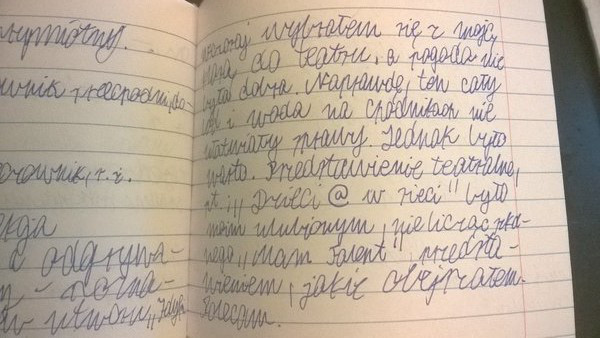 wymiotny.
ownik przechodni, da-
orownik, r. ż.
ekcja
w utworu „Idyl
wczoraj wybrałem się z moją
klasą do teatru, a pogoda nie
była dobra. Naprawdę, ten cały
lód i woda na chodnikach nie
ułatwiały sprawy. Jednak było
warto. Przedstawienie teatralne,
pt. „Dzieci @ w sieci" było
moim ulubionym, nie licząc zna-
nego „Mam Talent", przedsta-
wieniem, jakie obejrzałem.
Polecam.